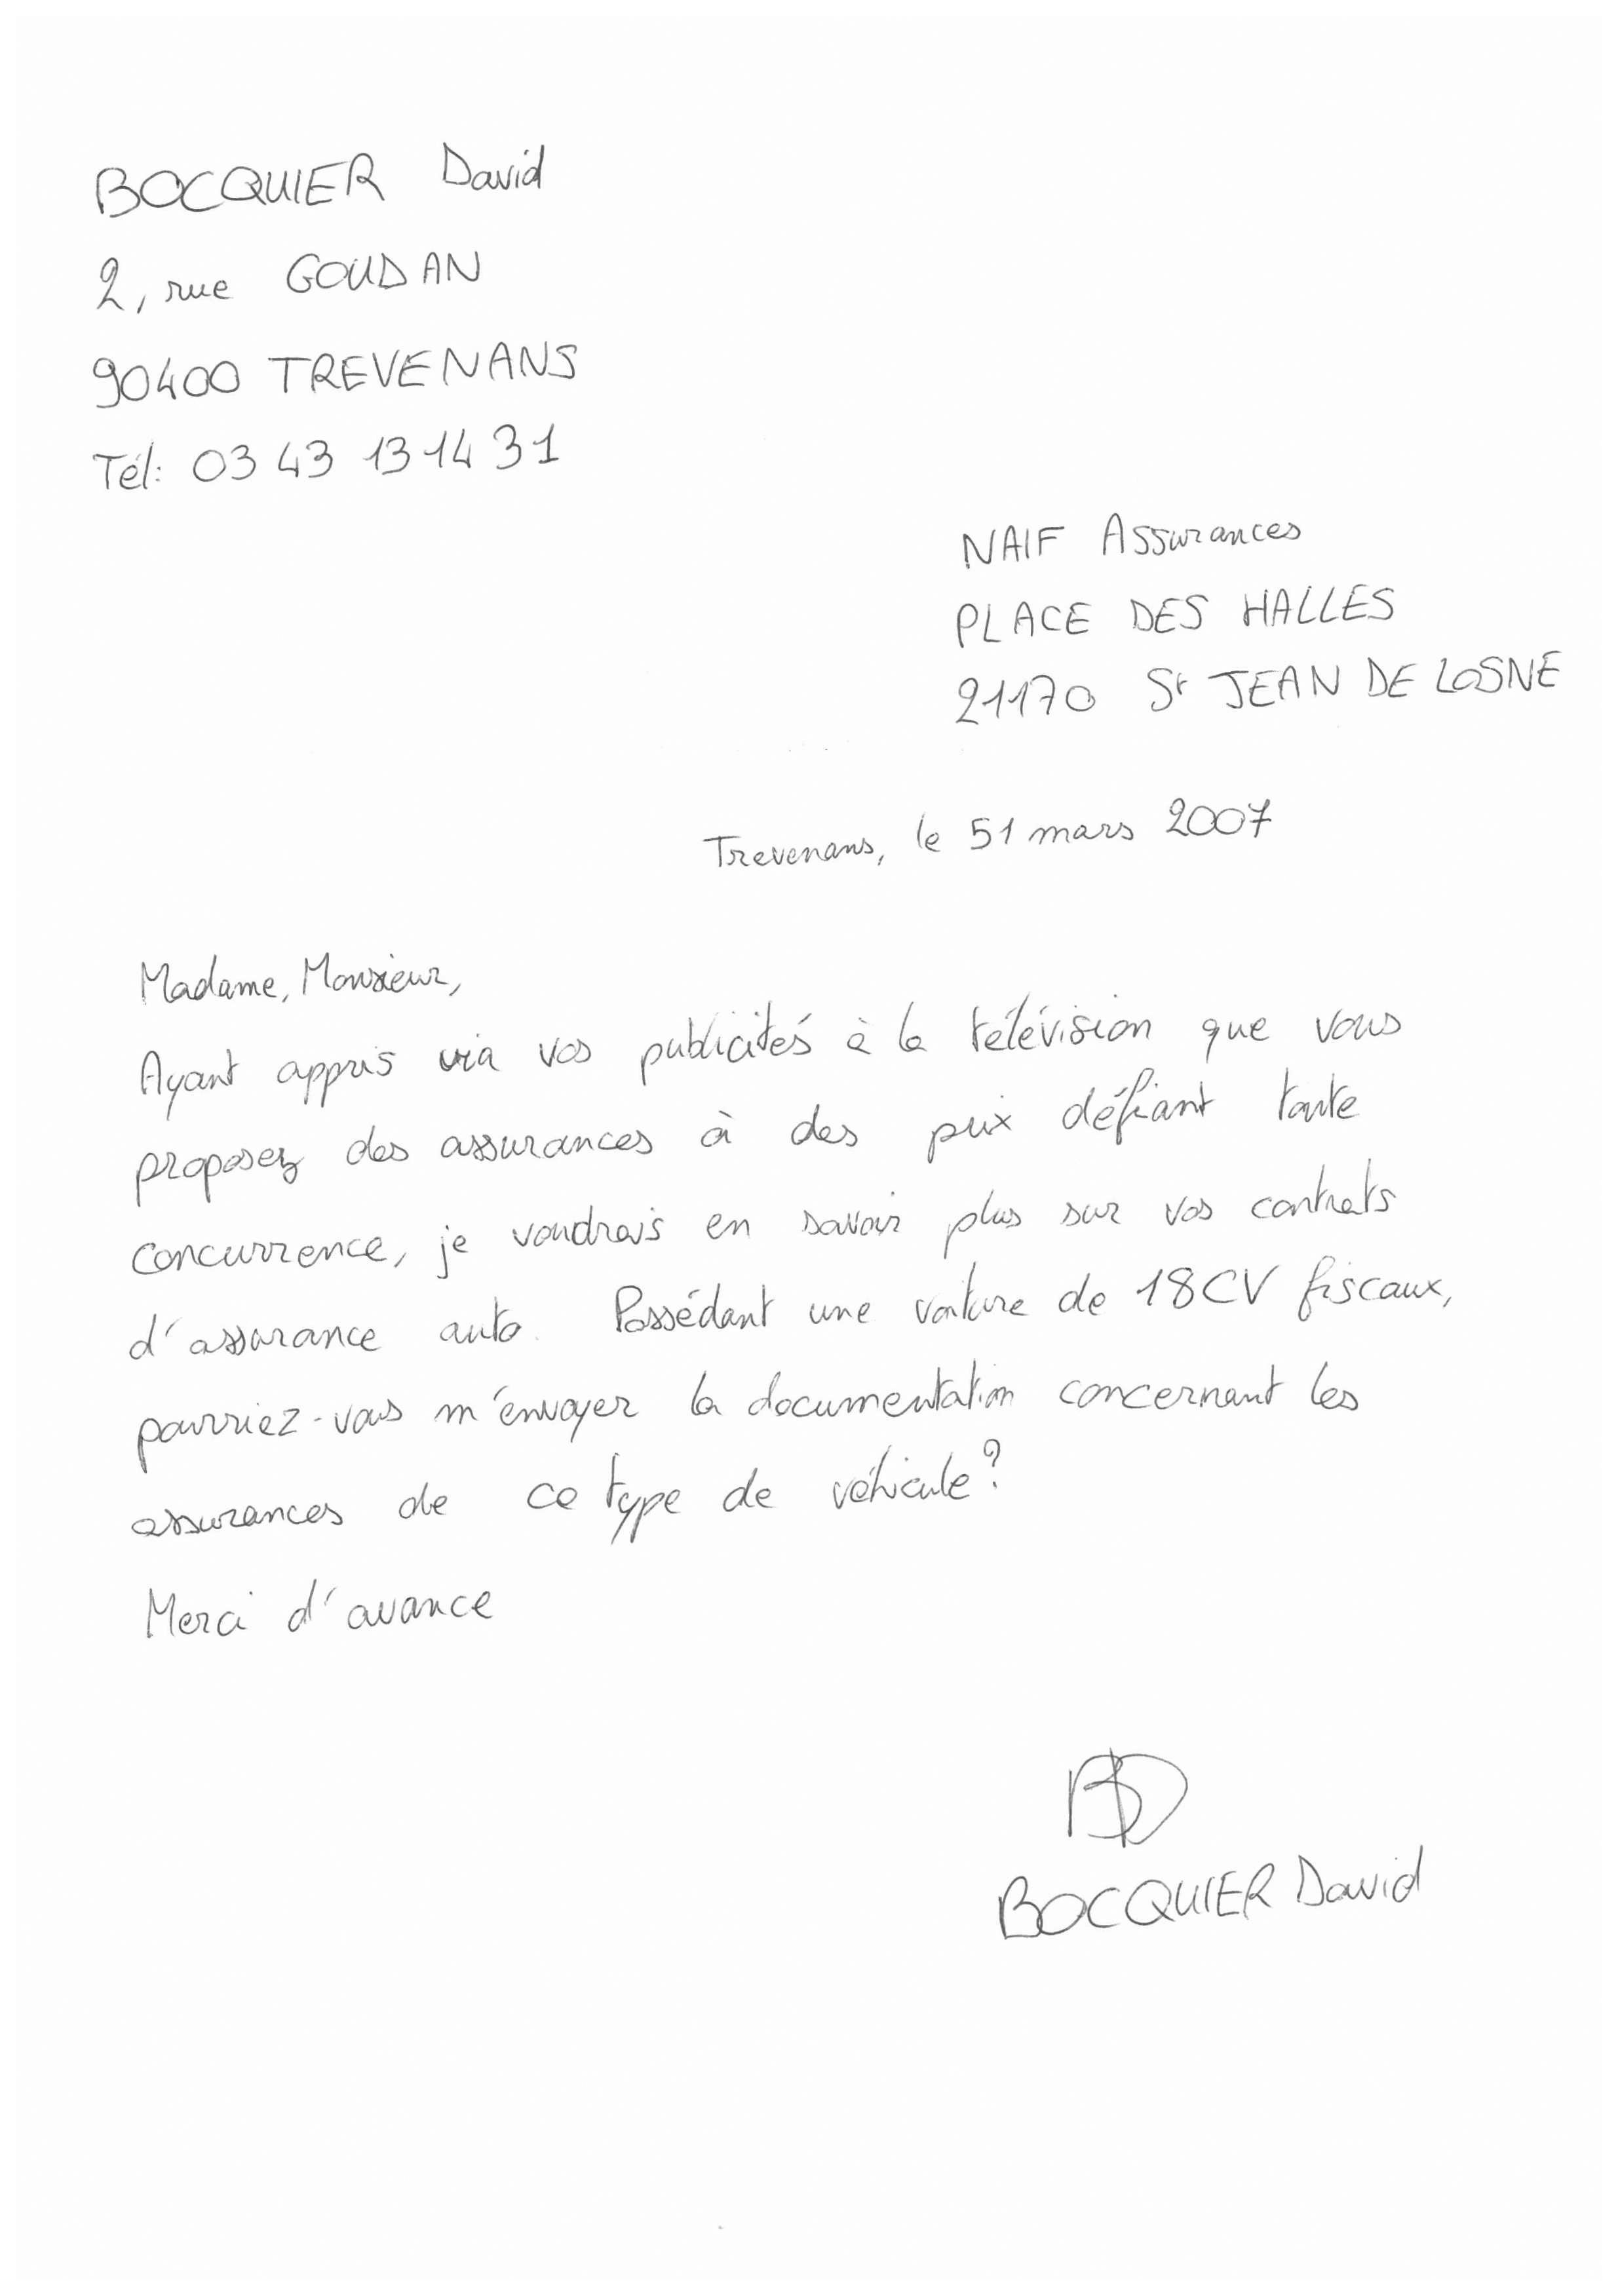 BOCQUIER David
2, rue GOUDAN
90400 TREVENANS
Tél: 03 43 13 14 31
NAIF Assurances
PLACE DES HALLES
21170 St JEAN DE LOSNE
Trevenans, le 51 mars 2007
Madame, Monsieur,
Ayant appris via vos publicités à la télévision que vous
proposez des assurances à des prix défiant toute
concurrence, je voudrais en savoir plus sur vos contrats
d'assurance auto. Possédant une voiture de 18CV fiscaux,
pourriez-vous m'envoyer la documentation concernant les
assurances de ce type de véhicule?
Merci d'avance
BD
BOCQUIER David